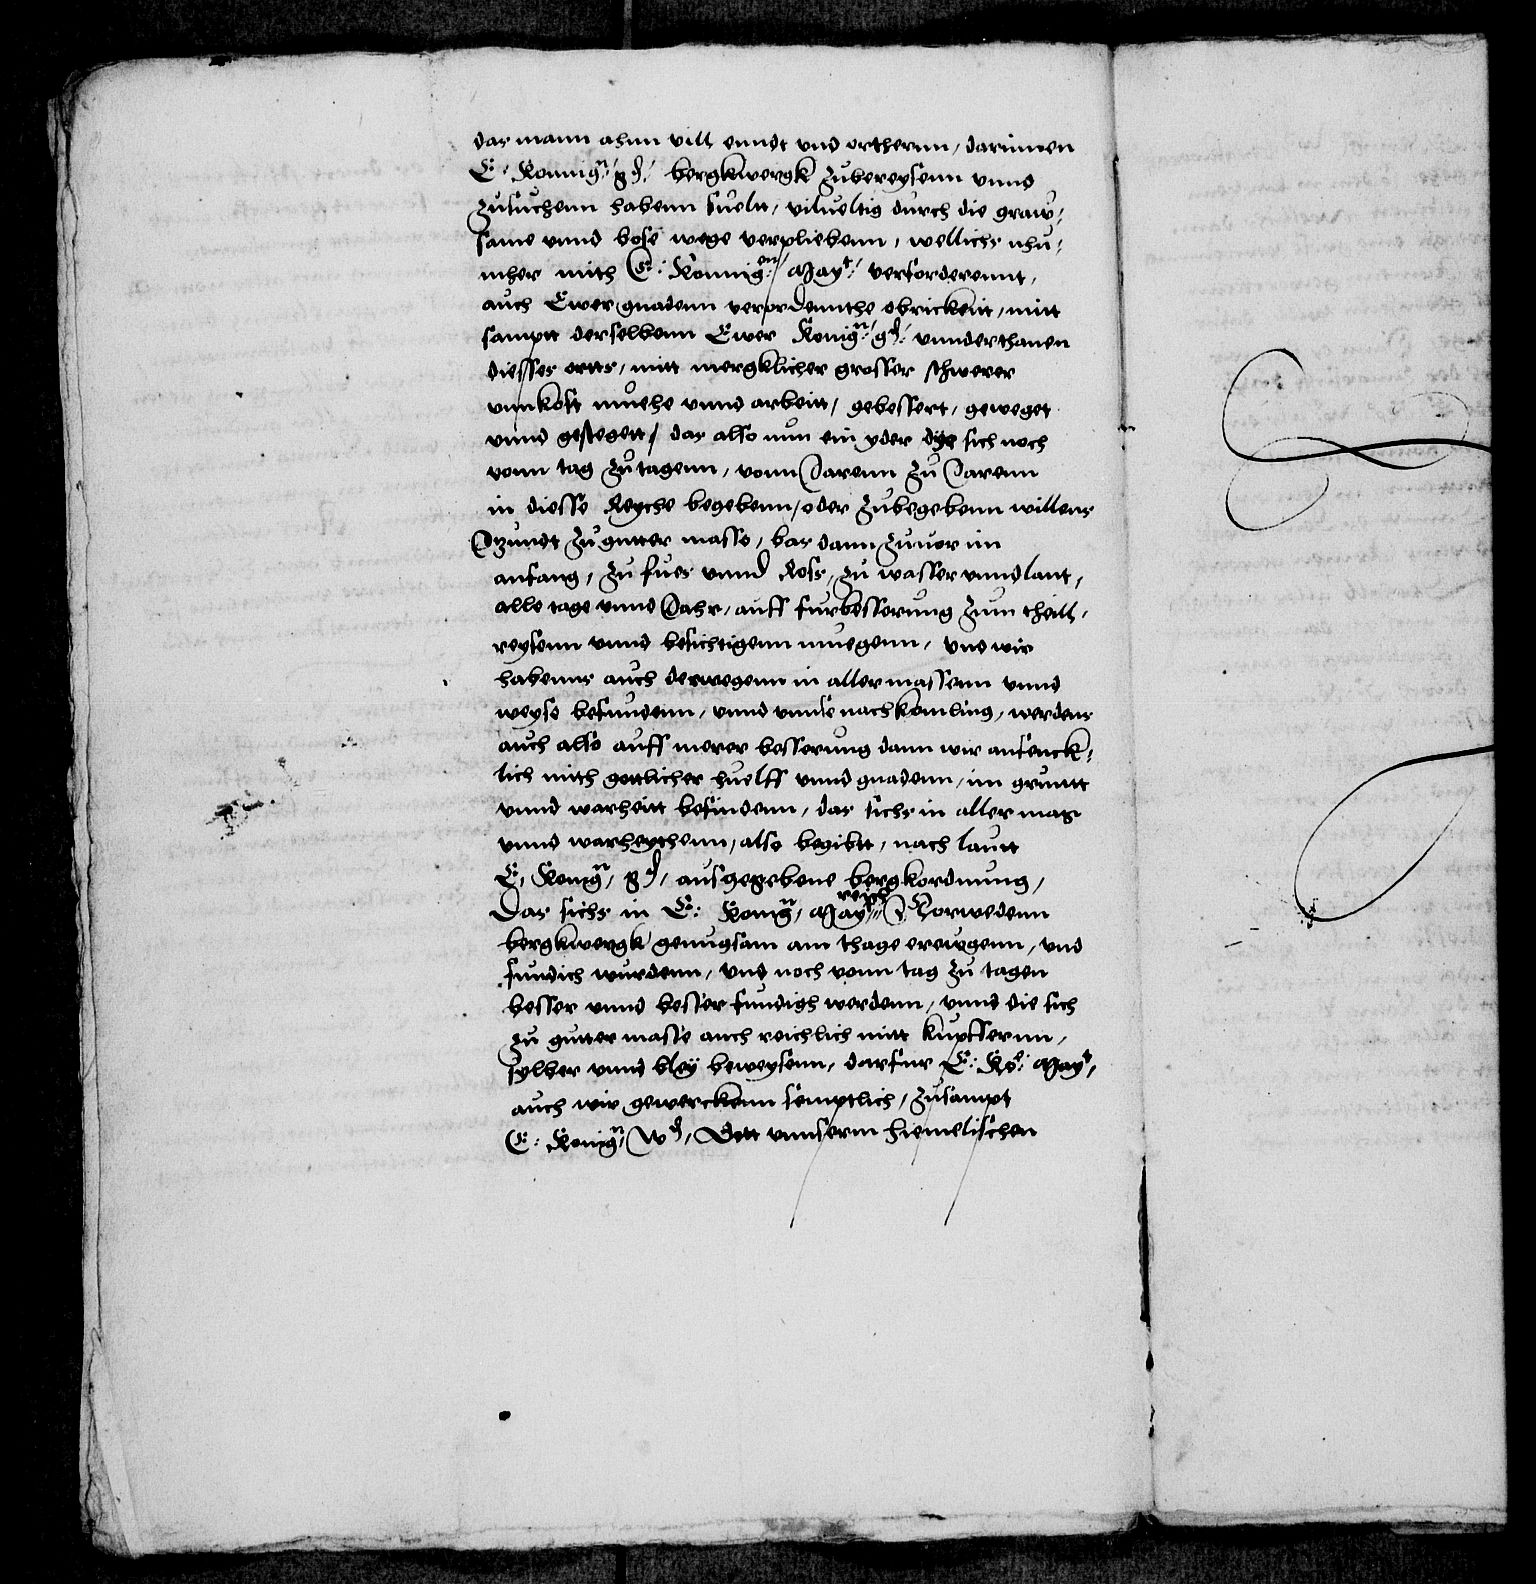 das mann ahnn vill enndt vnd orthernn, darinnen
E. Konnig:n/ g d/ bergkwergk zubereysenn vnnd
zusuchenn habenn suelt, vilueltig durch die graw,
same vnnd bose wege verpliebenn, wellichs nhu,
mher mith E: Konnig:en/ May:t/ verforderennt,
auch Ewer gnadenn verordennthe obrickeitt, mitt
samptt derselbenn Ewer Konig:n/ g d: vnnderthanen
diesses ortts, mitt mergklicher grosser schwerer
vnnkost muehe vnnd arbeitt, gebessert, geweget
vnnd gestegett, das also nun ein yder sich noch
vonn tag zu tagenn, vonn Jarenn zu Jarenn
in diesse Reyche begebenn, oder zubegebenn willens
Itzundt zu gutter masse, bas dann zuuor im
anfang, zu fues vnnd Ross, zu wasser vnnd lant,
alle tage vnnd Jahr, auff furbesserung zum theill,
reysenn vnnd besichtigenn muegenn, vnd wir
habenns auch derwegenn in aller massenn vnnd
weyse befundenn, vnnd vnnse nachkomling, werdens
auch also auff merer besserung dann wir anfenck,
lich mith gottlicher huelff vnnd gnadenn, im gruntt
vnnd warheitt befindenn, das sichs in aller mas
vnnd warheythenn, also begibtt, nach lautt
E, Konig:n, g d, ausgegebene bergkordnung,
Das sichs in E: Konig:n, May: reych Norwedenn
bergkwergk genugsam am thage ereugenn, vnd
fundich wurdenn, vnd noch vonn tag zu tagen
besser vnnd besser fundigh werdenn, vnnd die sich
zu gutter masse auch reichlich mitt kupffernn,
sylber vnnd bley beweysenn, darfur E: Ko: May:t,
auch wir gewerckenn semptlich, zusampt
E: Konig:n, W d, Gott vnnserm hiemelischen